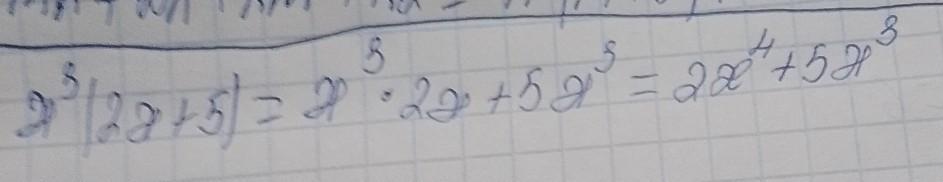 x³(2x+5) = x³ · 2x + 5x³ = 2x⁴ + 5x³